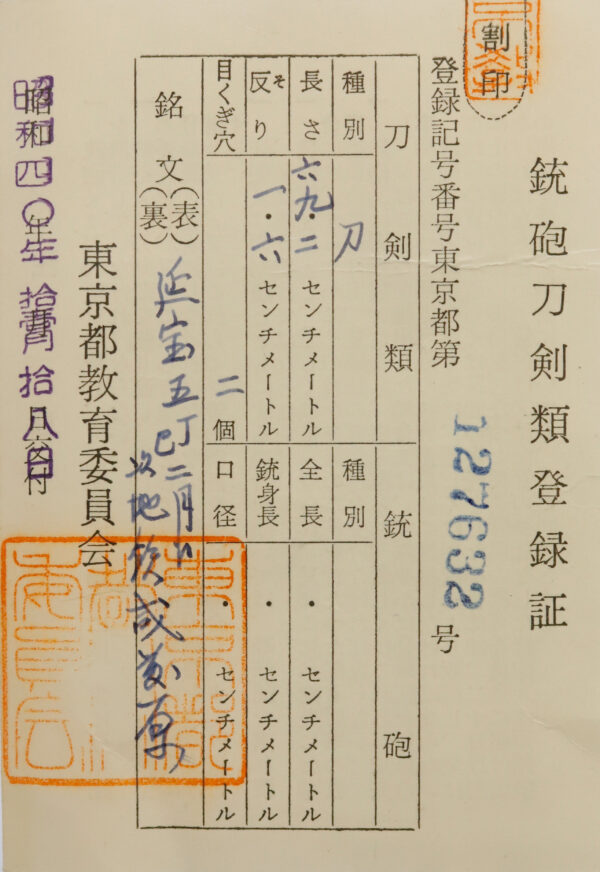 割印
銃砲刀剣類登録証
登録記号番号東京都第127632号
刀剣類
銃砲
種別 刀
種別
長さ 六九・二センチメートル
全長 ・ センチメートル
反り そ 一・六センチメートル
銃身長 ・ センチメートル
目くぎ穴 二個
口径 ・ センチメートル
銘文(表)(裏) 延宝五丁巳二月日
以地鉄成
東京都教育委員会
昭和四〇年拾壹月拾八日交付